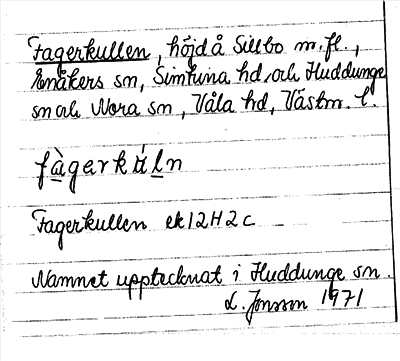 Fagerkullen, höjd å Sillbo m.fl.,
Enåkers sn, Simtuna hd, och Huddunge
sn och Nora sn, Våla hd, Västm. l.
fàgerkúln
Fagerkullen ek 12H2c
Namnet upptecknat i Huddunge sn.
L. Jonsson 1971